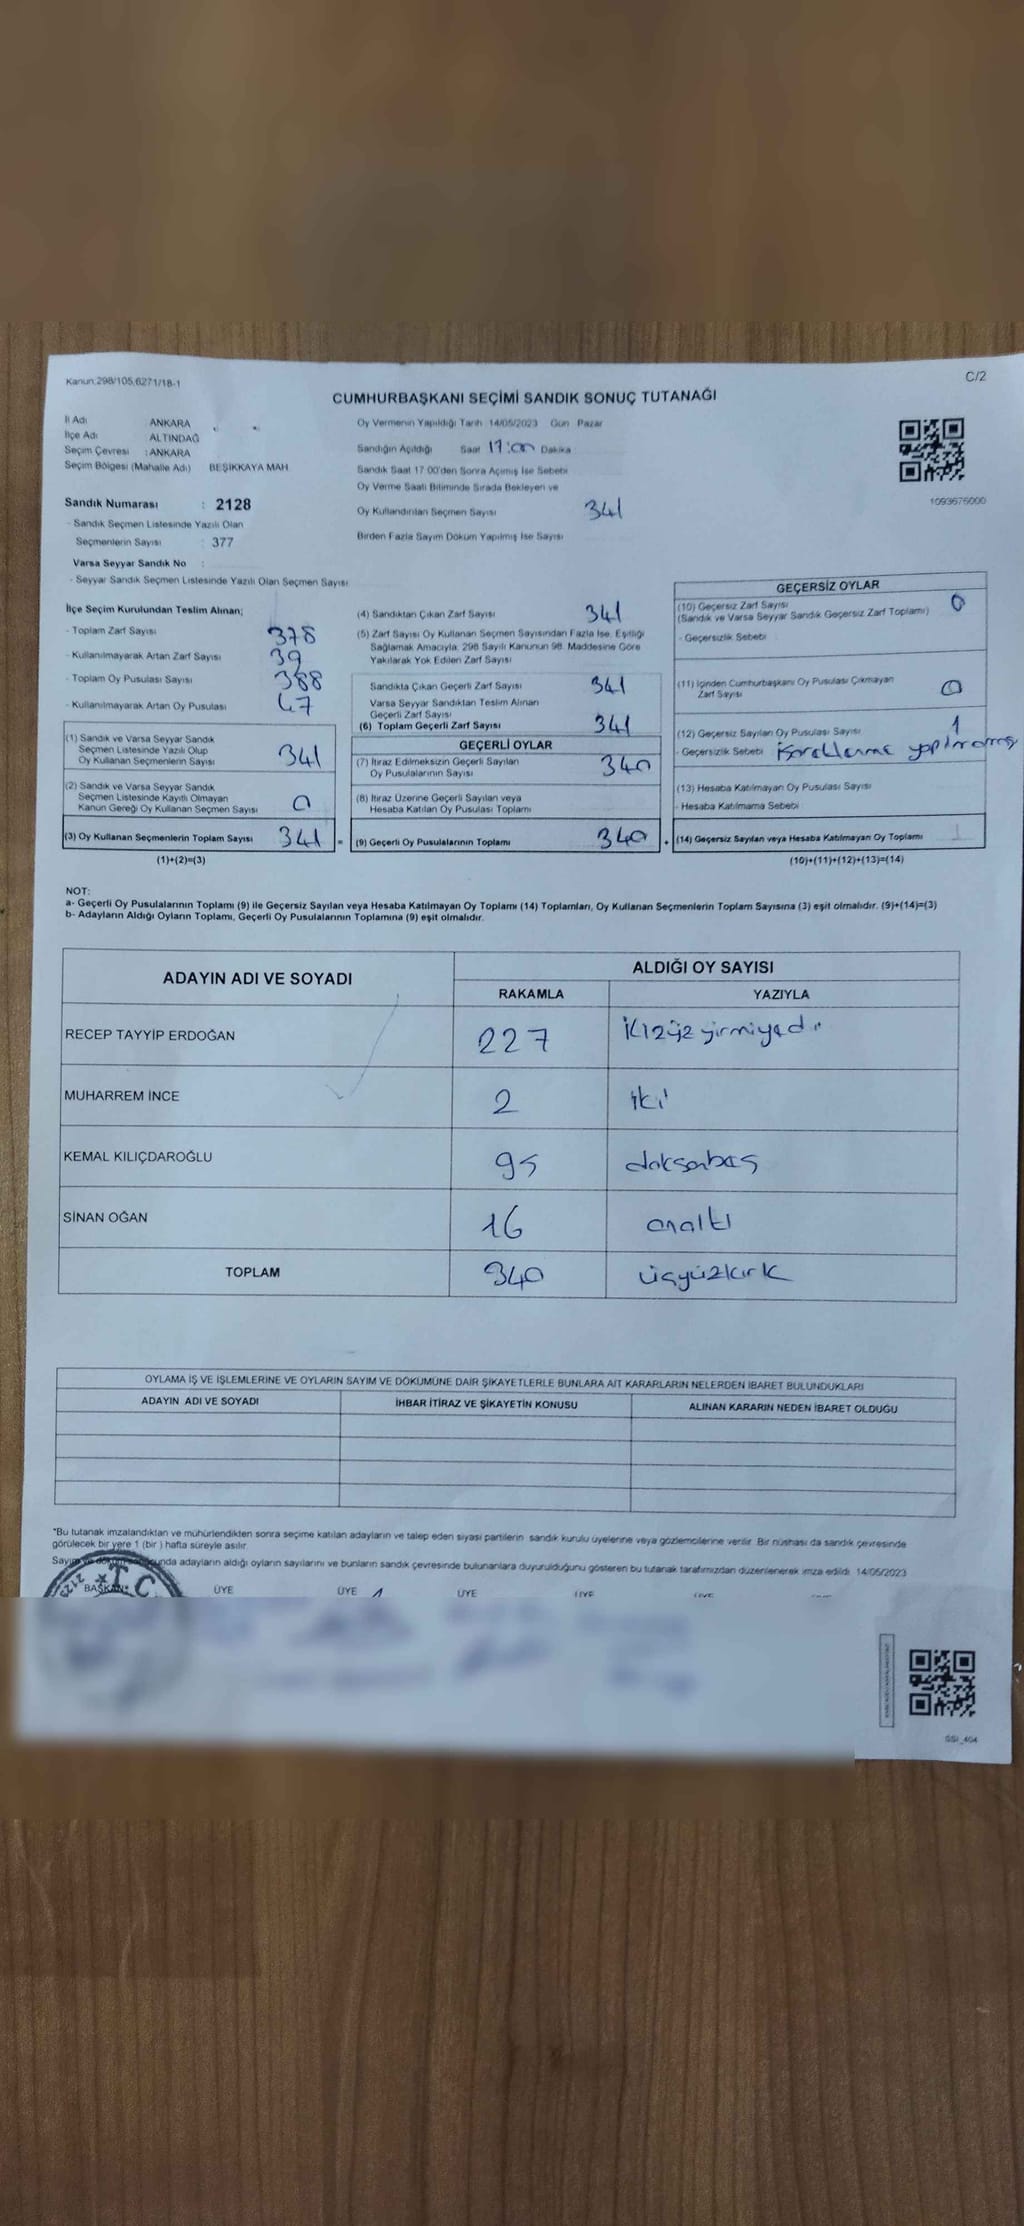 Kanun:298/105,6271/18-1
C/2
CUMHURBAŞKANI SEÇİMİ SANDIK SONUÇ TUTANAĞI
İl Adı ANKARA
İlçe Adı ALTINDAĞ
Seçim Çevresi : ANKARA
Seçim Bölgesi (Mahalle Adı) BEŞİKKAYA MAH.
Sandık Numarası : 2128
- Sandık Seçmen Listesinde Yazılı Olan
Seçmenlerin Sayısı : 377
Varsa Seyyar Sandık No :
- Seyyar Sandık Seçmen Listesinde Yazılı Olan Seçmen Sayısı
Oy Vermenin Yapıldığı Tarih 14/05/2023 Gün Pazar
Sandığın Açıldığı Saat 17:00 Dakika
Sandık Saat 17.00'den Sonra Açımış İse Sebebi
Oy Verme Saati Bitiminde Sırada Bekleyen ve
Oy Kullandırılan Seçmen Sayısı 341
Birden Fazla Sayım Döküm Yapılmış İse Sayısı
1093676000
İlçe Seçim Kurulundan Teslim Alınan;
- Toplam Zarf Sayısı 378
- Kullanılmayarak Artan Zarf Sayısı 39
- Toplam Oy Pusulası Sayısı 388
- Kullanılmayarak Artan Oy Pusulası 47
(1) Sandık ve Varsa Seyyar Sandık
Seçmen Listesinde Yazılı Olup
Oy Kullanan Seçmenlerin Sayısı 341
(2) Sandık ve Varsa Seyyar Sandık
Seçmen Listesinde Kayıtlı Olmayan
Kanun Gereği Oy Kullanan Seçmen Sayısı 0
(3) Oy Kullanan Seçmenlerin Toplam Sayısı 341 =
(1)+(2)=(3)
(4) Sandıktan Çıkan Zarf Sayısı 341
(5) Zarf Sayısı Oy Kullanan Seçmen Sayısından Fazla İse, Eşitliği
Sağlamak Amacıyla, 298 Sayılı Kanunun 98. Maddesine Göre
Yakılarak Yok Edilen Zarf Sayısı
Sandıkta Çıkan Geçerli Zarf Sayısı 341
Varsa Seyyar Sandıktan Teslim Alınan
Geçerli Zarf Sayısı
(6) Toplam Geçerli Zarf Sayısı 341
GEÇERLİ OYLAR
(7) İtiraz Edilmeksizin Geçerli Sayılan
Oy Pusulalarının Sayısı 340
(8) İtiraz Üzerine Geçerli Sayılan veya
Hesaba Katılan Oy Pusulası Toplamı
(9) Geçerli Oy Pusulalarının Toplamı 340 +
GEÇERSİZ OYLAR
(10) Geçersiz Zarf Sayısı 0
(Sandık ve Varsa Seyyar Sandık Geçersiz Zarf Toplamı)
- Geçersizlik Sebebi
(11) İçinden Cumhurbaşkanı Oy Pusulası Çıkmayan
Zarf Sayısı 0
(12) Geçersiz Sayılan Oy Pusulası Sayısı 1
- Geçersizlik Sebebi işaretlenme yapılmamış
(13) Hesaba Katılmayan Oy Pusulası Sayısı
- Hesaba Katılmama Sebebi
(14) Geçersiz Sayılan veya Hesaba Katılmayan Oy Toplamı 1
(10)+(11)+(12)+(13)=(14)
NOT:
a- Geçerli Oy Pusulalarının Toplamı (9) ile Geçersiz Sayılan veya Hesaba Katılmayan Oy Toplamı (14) Toplamları, Oy Kullanan Seçmenlerin Toplam Sayısına (3) eşit olmalıdır. (9)+(14)=(3)
b- Adayların Aldığı Oyların Toplamı, Geçerli Oy Pusulalarının Toplamına (9) eşit olmalıdır.
ADAYIN ADI VE SOYADI ALDIĞI OY SAYISI
RAKAMLA YAZIYLA
RECEP TAYYİP ERDOĞAN 227 ikiyüzyirmiyedi
MUHARREM İNCE 2 iki
KEMAL KILIÇDAROĞLU 95 doksanbeş
SİNAN OĞAN 16 onaltı
TOPLAM 340 üçyüzkırk
OYLAMA İŞ VE İŞLEMLERİNE VE OYLARIN SAYIM VE DÖKÜMÜNE DAİR ŞİKAYETLERLE BUNLARA AİT KARARLARIN NELERDEN İBARET BULUNDUKLARI
ADAYIN ADI VE SOYADI İHBAR İTİRAZ VE ŞİKAYETİN KONUSU ALINAN KARARIN NEDEN İBARET OLDUĞU
*Bu tutanak imzalandıktan ve mühürlendikten sonra seçime katılan adayların ve talep eden siyasi partilerin sandık kurulu üyelerine veya gözlemcilerine verilir. Bir nüshası da sandık çevresinde
görülecek bir yere 1 (bir) hafta süreyle asılır.
adayların aldığı oyların sayılarını ve bunların sandık çevresinde bulunanlara duyurulduğunu gösteren bu tutanak tarafımızdan düzenlenerek imza edildi. 14/05/2023
T.C.
BAŞKAN ÜYE ÜYE ÜYE ÜYE
SSI_404